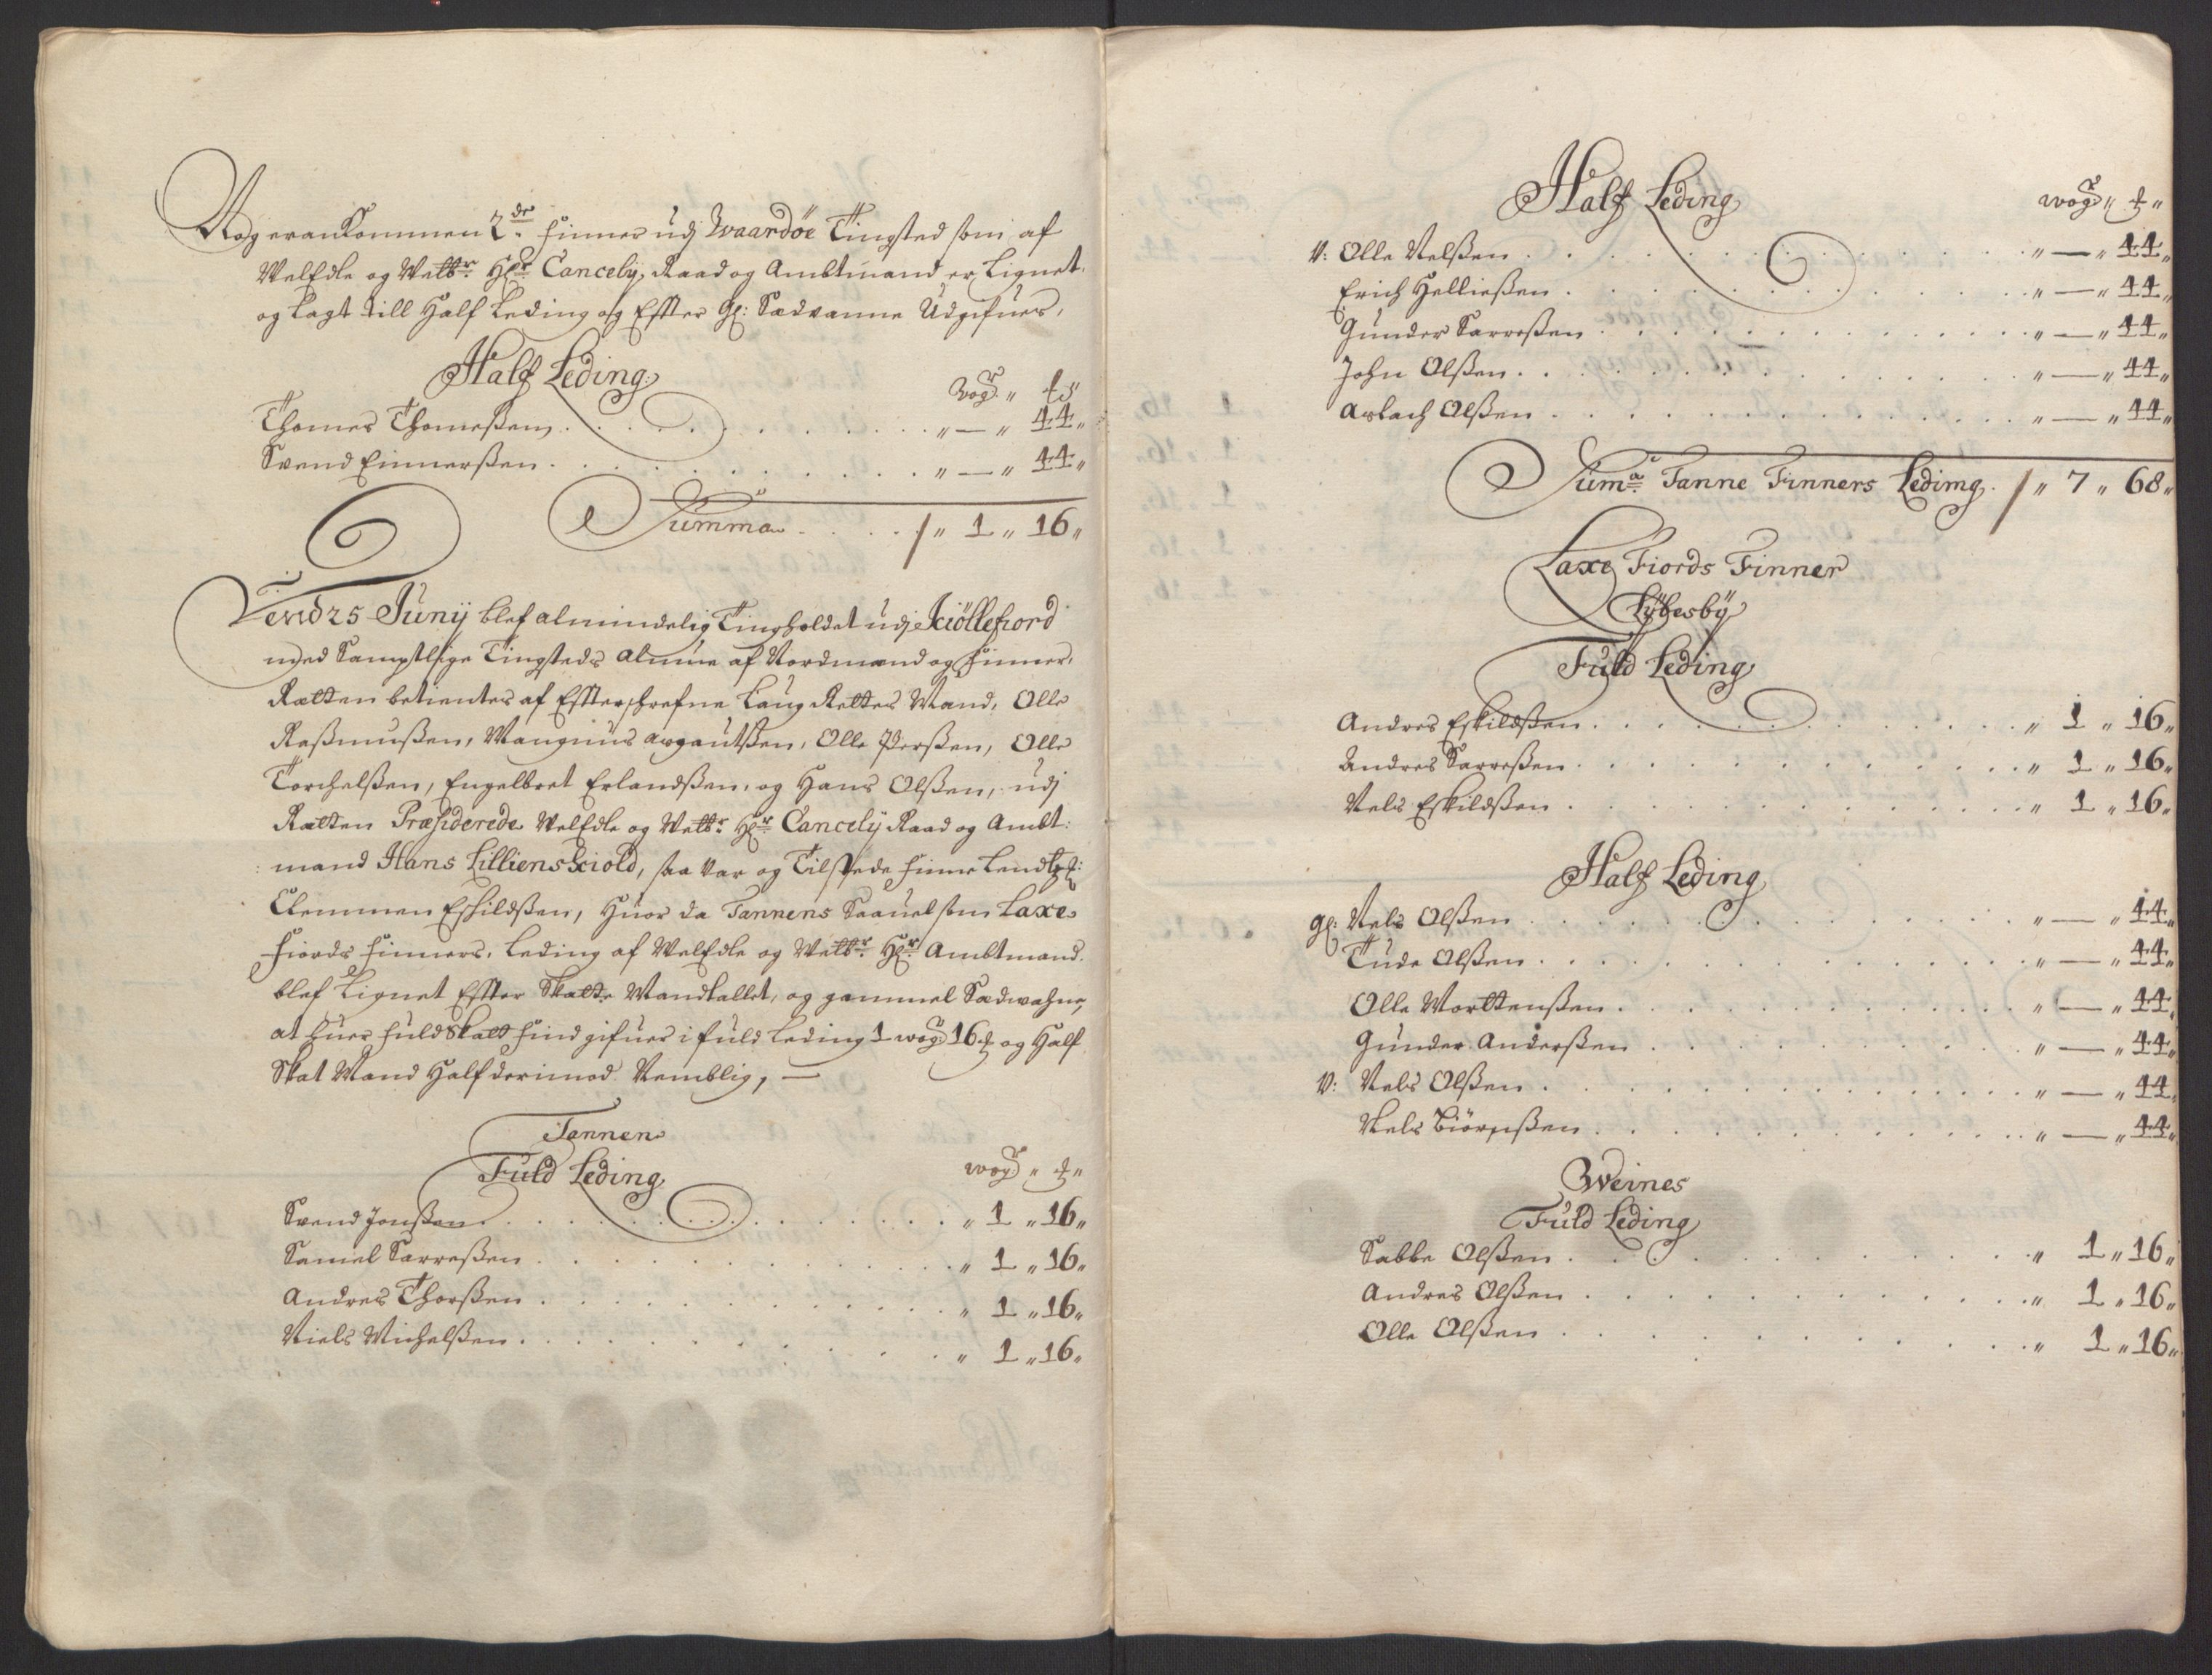 Nog er ankommen 2de finner udj Waardöe Tingsted som af
WelEdle og Welbr. Hr. Cancelij Raad og Ambtmand er Lignet
og lagt till Half Leding og Effter gl: Sædvanne Udgifues,
Half Leding
wogr " ℔
Thomes Thomeßen " — " 44 "
Svend Einnerßen " — " 44 "
Summa / " 1 " 16 "
Dend 25 Junij blef almindelig Ting holdet udj Kiöllefiord
med Samptlige Tingsteds almue af Nordmænd og finner,
Rætten betientes af Effterschrefne Laug Rættes Mænd, Olle
Raßmußen, Mangnus argautßen, Olle Perßen, Olle
Torchelßen, Engelbret Erlandßen, og Hans Olßen, udj
Rætten Præsiderede WelEdle og Welbr. Hr. Cancelij Raad og Ambt:
mand Hans Lillienskiold, saa var og Tilstede finne Lendß:
Clemmen Eskildßen, Huor da Tannens Saauel som Laxe
fiords finners, Leding af WelEdle og Welbr. Hr. Ambtmand
blef Lignet Effter Skatte Mandtallet, og gammel Sædwahne,
at huer fuld Skatt find gifuer i fuld Leding 1 wogr 16 ℔ og Half
Skat Mand Half derimod Nemblig, —
Tannen
Fuld Leding
wogr " ℔ "
Svend Jonßen " 1 " 16 "
Samiel Sarreßen " 1 " 16 "
Andres Thorßen " 1 " 16 "
Niels Michelßen " 1 " 16 "
Half Leding
wogr " ℔ "
V: Olle Nelßen " — " 44 "
Erich Helließen " — " 44 "
Gunder Sarreßen " — " 44 "
John Olßen " — " 44 "
Aslach Olßen " — " 44 "
Suma Tanne Finners Leding / " 7 " 68 "
Laxe Fiords Finner
Lybesbÿ
Fuld Leding
Andres Eskildßen " 1 " 16 "
Andres Sarreßen " 1 " 16 "
Nels Eskildßen " 1 " 16 "
Half Leding
gl: Nels Olßen " — " 44 "
Tude Olßen " — " 44 "
Olle Morttenßen " — " 44 "
Gunder Anderßen " — " 44 "
V: Nels Olßen " — " 44 "
Nels Biörnßen " — " 44 "
Weines
Fuld Leding
Sabbe Olßen " 1 " 16 "
Andres Olßen " 1 " 16 "
Olle Olßen " 1 " 16 "